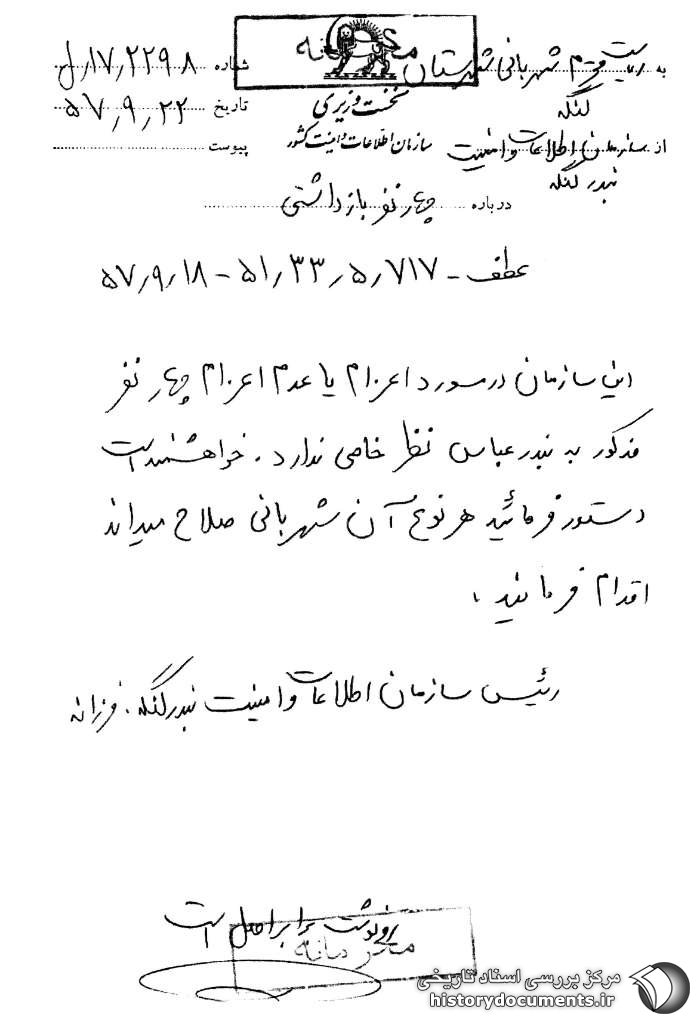 محرمانه
به ریاست محترم شهربانی شهرستان لنگه
از سازمان اطلاعات و امنیت بندر لنگه
نخست وزیری
سازمان اطلاعات و امنیت کشور
شماره ۱۷٫۲۲۹۸٫ل
تاریخ ۵۷٫۹٫۲۲
پیوست
درباره چهار نفر بازداشتی
عطف - ۵۱٫۳۳٫۵٫۷۱۷ - ۵۷٫۹٫۱۸
این سازمان در مورد اعزام یا عدم اعزام چهار نفر
مذکور به بندرعباس نظر خاصی ندارد. خواهشمند است
دستور فرمائید هر نوع آن شهربانی صلاح میداند
اقدام فرمایند.
رئیس سازمان اطلاعات و امنیت بندرلنگه. فرزانه
رونوشت برابر اصل است
محرمانه
مرکز بررسی اسناد تاریخی
historydocuments.ir